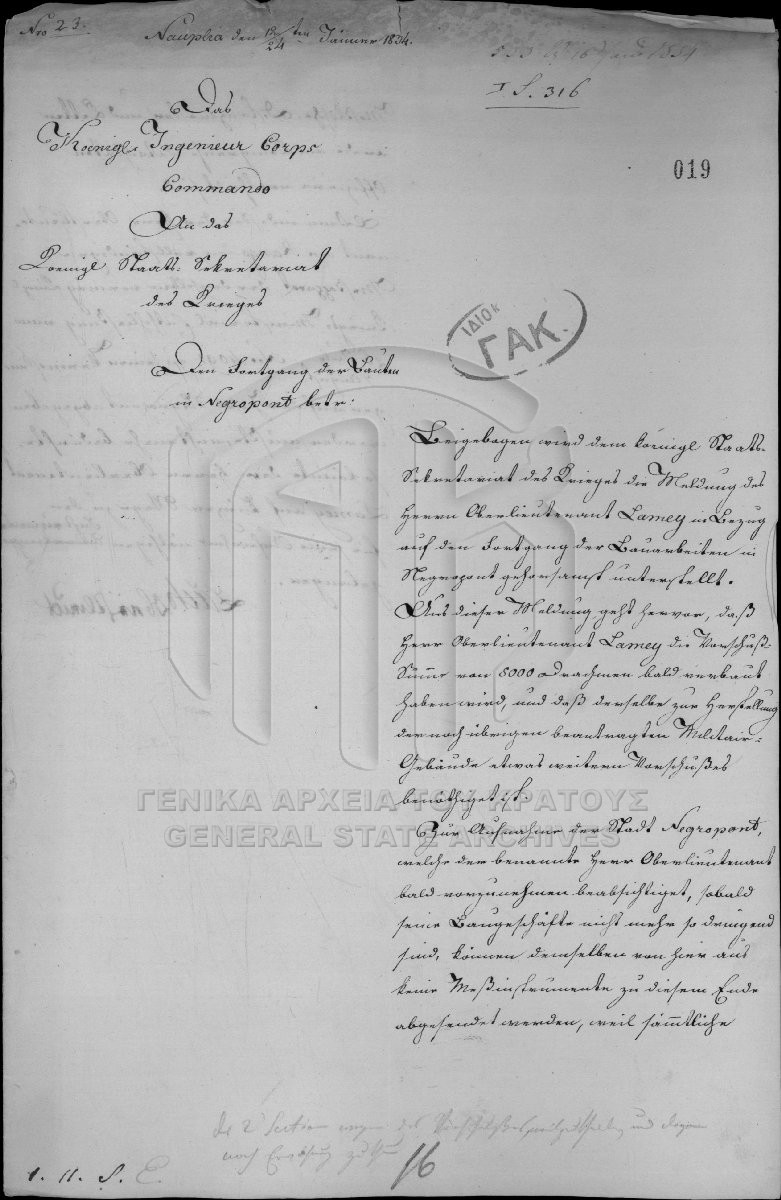 Nro 23.
Nauplia den 12/24ten Jänner 1834.
I S. 316
019
Das
Koenigl. Ingenieur Corps
Commando
An das
Koenigl Staats-Sekretariat
des Krieges
ΙΔΙΟΚ
ΓΑΚ.
Den Fortgang der Bauten
in Negropont betr:
Beigebogen wird dem königl Staats-
Sekretariat des Krieges die Meldung des
Herrn Oberlieutenant Lamey in Bezug
auf den Fortgang der Bauarbeiten in
Negropont gehorsamst unterstellt.
Aus dieser Meldung geht hervor, daß
Herr Oberlieutenant Lamey die Vorschuß-
Summe von 5000 Drachmen bald verbaut
haben wird, und daß derselbe zur Herstellung
der noch übrigen beantragten Militair-
Gebäude etwas weitern Vorschußes
benöthiget ist.
ΓΕΝΙΚΑ ΑΡΧΕΙΑ ΤΟΥ ΚΡΑΤΟΥΣ
GENERAL STATE ARCHIVES
Zur Aufnahme der Stadt Negropont,
welche der benannte Herr Oberlieutenant
bald vorzunehmen beabsichtiget, sobald
seine Baugeschäfte nicht mehr so dringend
sind, können demselben von hier aus
keine Meßinstrumente zu diesem Ende
abgesendet werden, weil sämmtliche
16
1. 11. S. E.